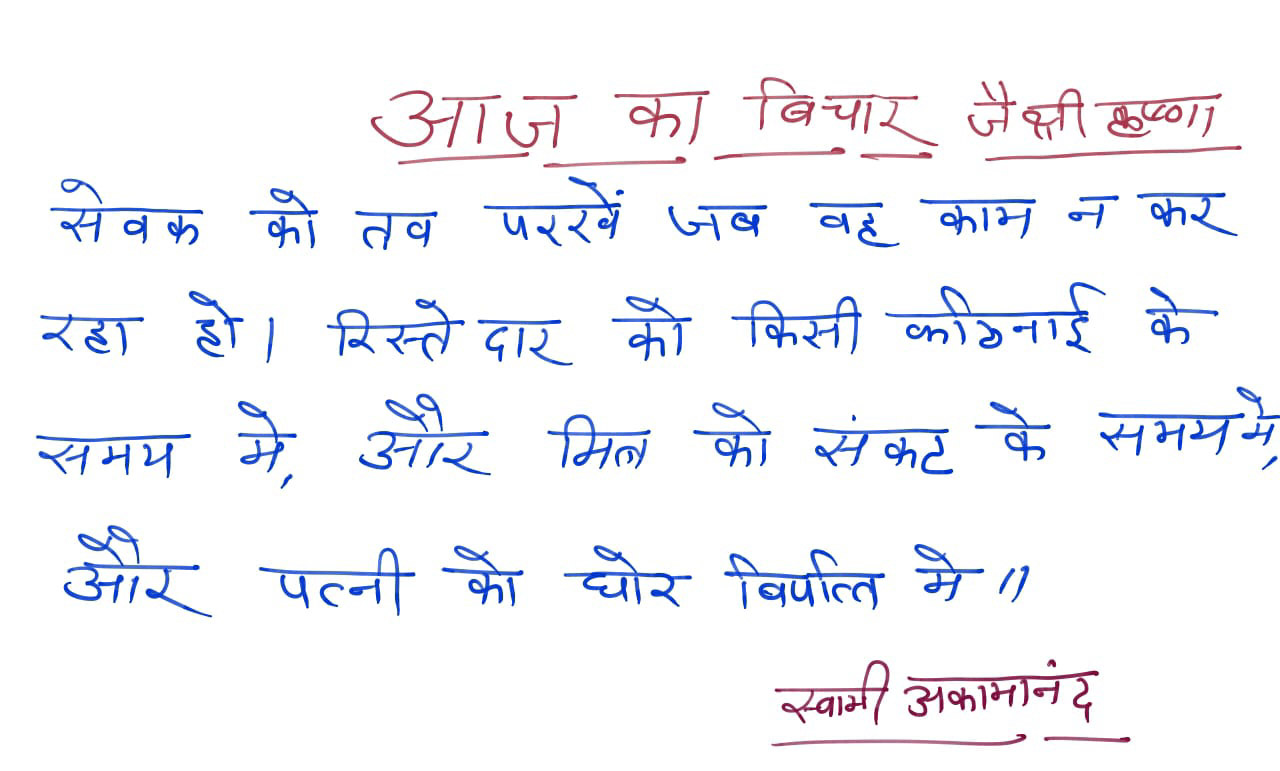 आज का बिचार जै श्री कृष्णा
सेवक को तव परखें जब वह काम न कर
रहा हो। रिस्तेदार को किसी कठिनाई के
समय मे, और मित्र को संकट के समय मे,
और पत्नी को घोर बिपत्ति मे॥
स्वामी अकामानंद